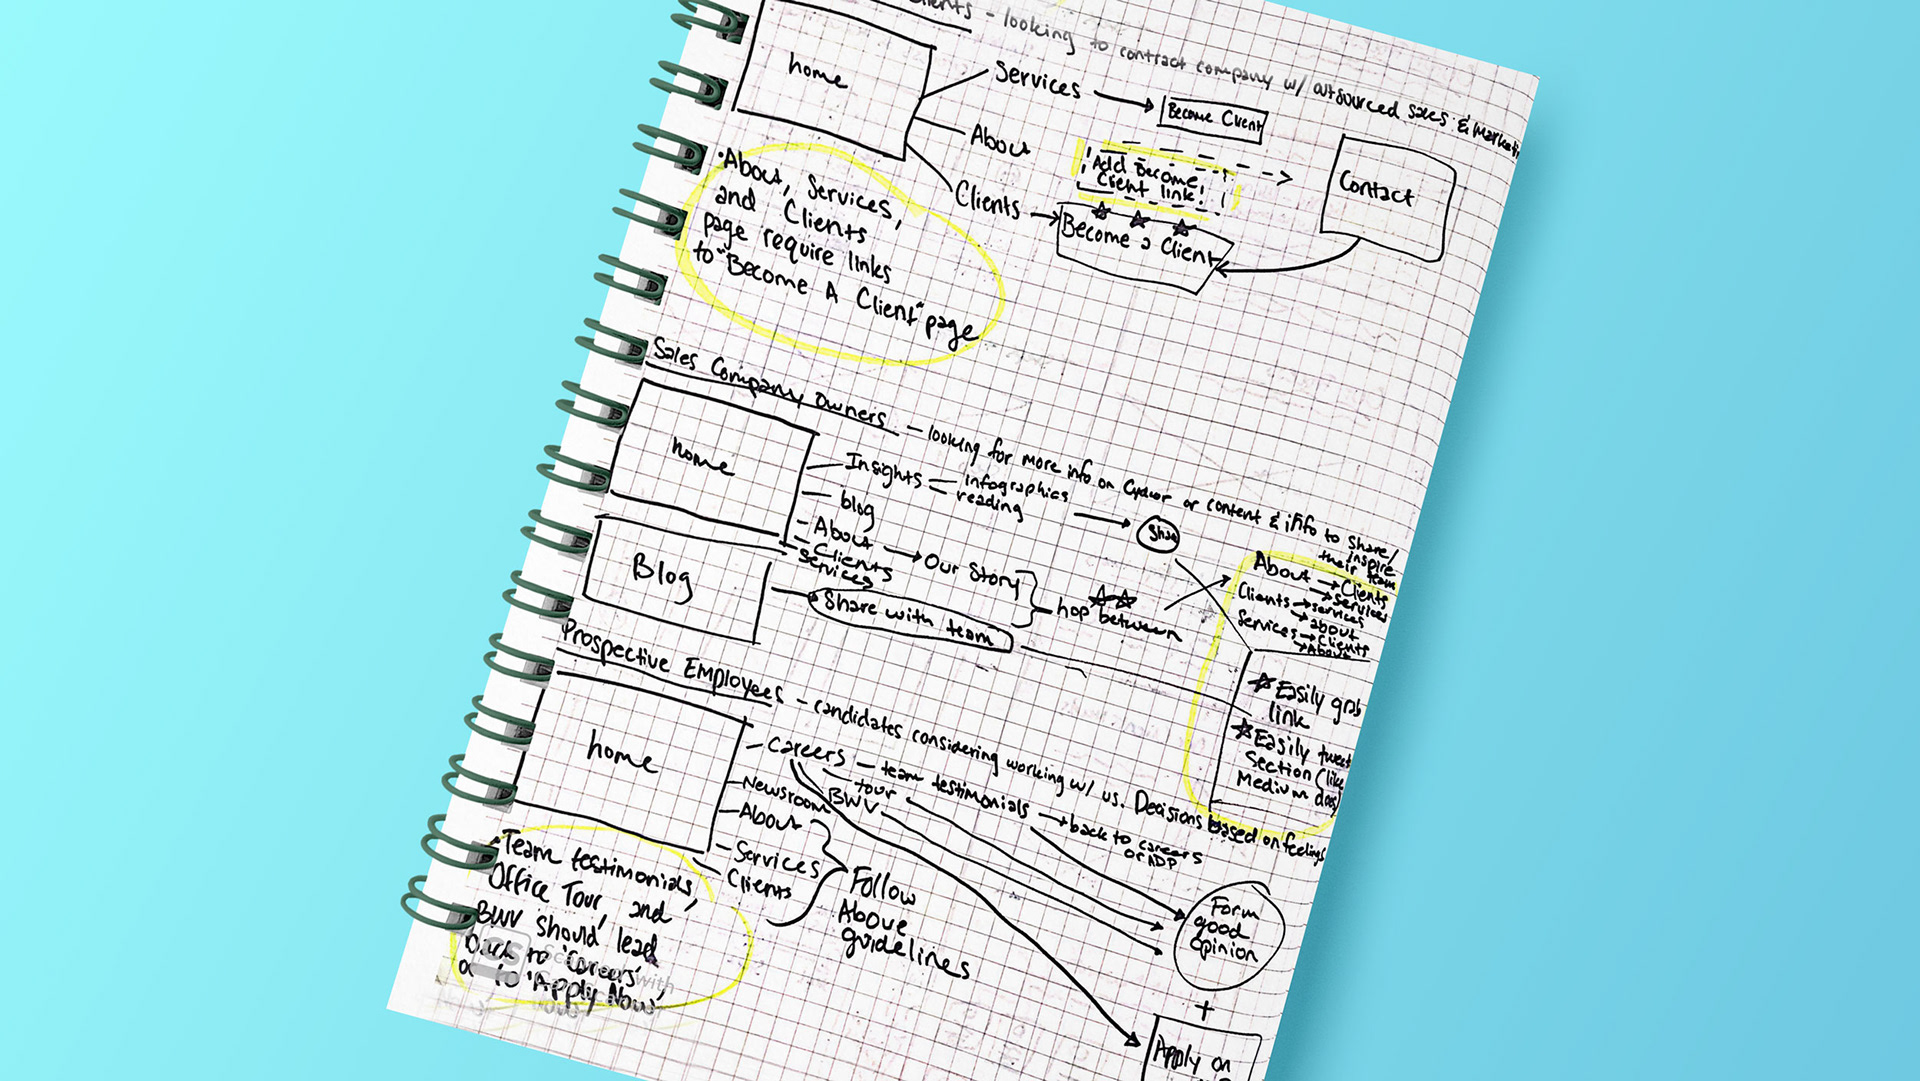 clients - looking to contract company w/ outsourced sales & marketi
home
Services
Become Client
About
Add Become
Client link!
Contact
Clients
Become a Client
• About, Services,
and Clients
page require links
to "Become A Client" page
Sales Company Owners
- looking for more info on Cydcor or content & info to share/
inspire
their team
home
Insights
infographics
reading
blog
Share
About
Our Story
Clients
Services
Blog
Share with team
hop between
About → Clients
→ Services
Clients → services
→ about
Services → Clients
→ About
Easily grab
link
Easily tweet
Section (like
Medium does)
Prospective Employees - candidates considering working w/ us. Decisions based on feelings
home
Careers - team testimonials → back to careers
or ADP
tour
BWV
Newsroom
About
Services
Clients
Follow
Above
guidelines
Form
good
opinion
+
Apply on
• Team testimonials,
Office Tour and
BWV should lead
back to 'Careers',
or to 'Apply Now'